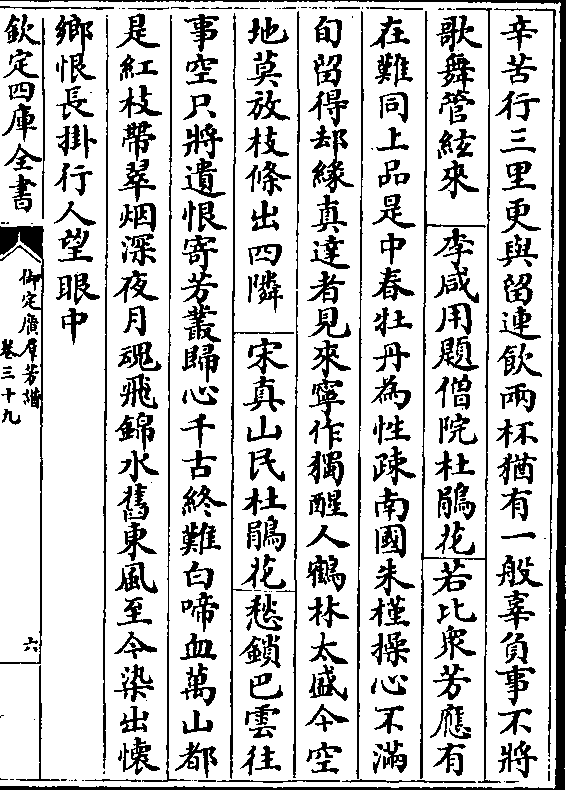 辛苦行三里更與留連飲兩杯猶有一般辜負事不將
歌舞管絃來　李咸用題僧院杜鵑花　若比衆芳應有
在難同上品是中春牡丹為性疎南國朱槿操心不滿
旬留得却緣真達者見來寧作獨醒人鶴林太盛今空
地莫放枝條出四隣　宋真山民杜鵑花　愁鎖巴雲往
事空只將遺恨寄芳叢歸心千古終難白啼血萬山都
是紅枝帶翠烟深夜月魂飛錦水舊東風至今染出懷
鄉恨長掛行人望眼中
欽定四庫全書
御定廣羣芳譜
卷三十九
六